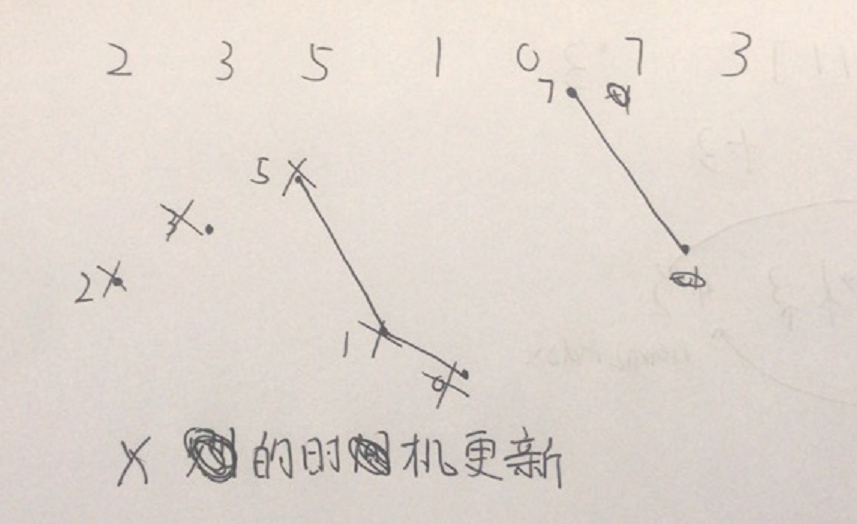 2 3 5 1 0 7 3
7
5
3
2
1
0
X 的时机更新